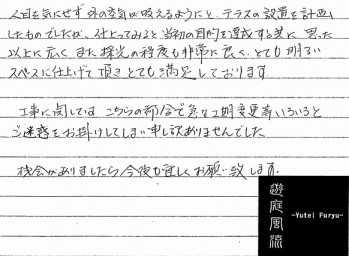 人目を気にせず外の空気が吸えるようにと、テラスの設置を計画
したものでしたが、仕上ってみると当初の目的を達成する事に、思った
以上に広く、また採光の程度も非常に良く、とても明るい
スペースに仕上げて頂きとても満足しております
工事に関しては こちらの都合で急な工期変更等いろいろと
ご迷惑をお掛けしてしまい申し訳ありませんでした
機会がありましたら今後も宜しくお願い致します。
遊庭風流
-Yutei Furyu-